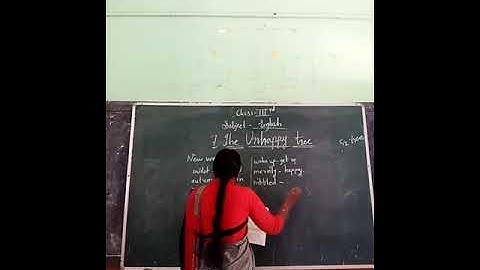 Class: III rd
Subject - English
7 The Unhappy tree
New
midst
wake up - get up
merrily - happy
nibbled -